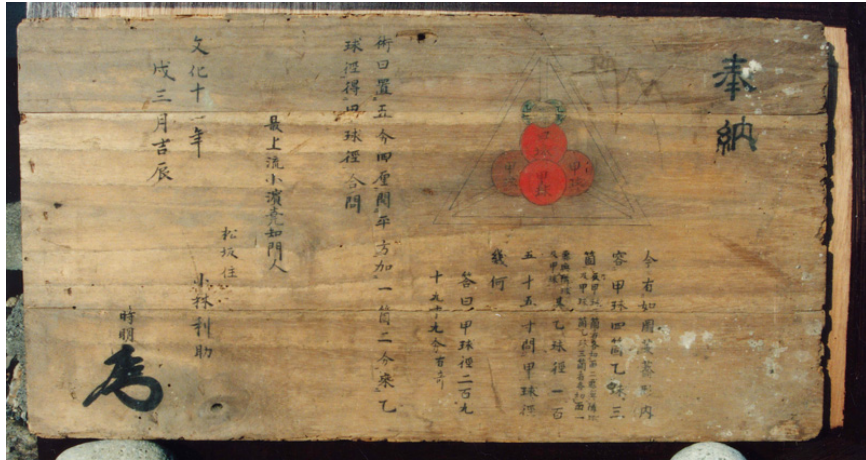 奉納
甲球
甲球
甲球
甲球
今有如圖蕎麥形内
容甲球四箇乙球三
箇
其乙球徑一百
五十五寸問甲球徑
幾何
答曰甲球徑二百九
十九寸九分有奇
術曰置五分四厘開平方加一箇二分乗乙
球徑得甲球徑合問
最上流小濱堯知門人
松坂住
小林利助
時明
文化十一年
戌三月吉辰